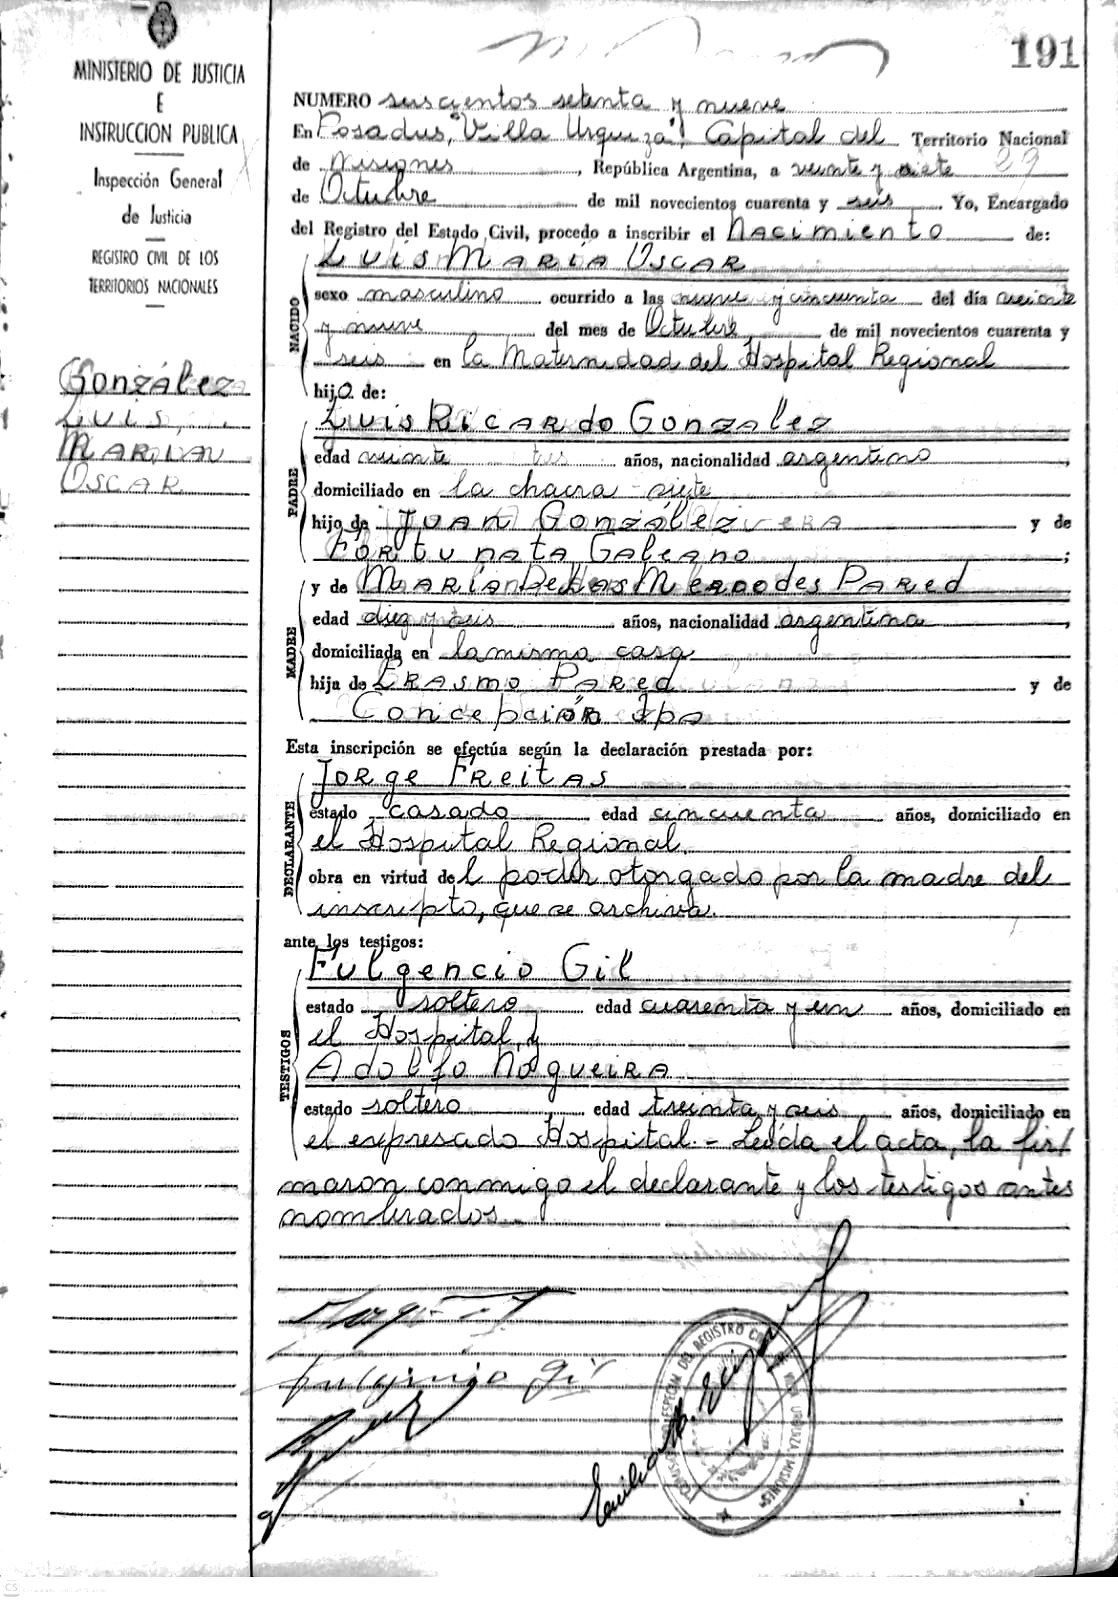 191
MINISTERIO DE JUSTICIA
E
INSTRUCCION PUBLICA
Inspección General
de Justicia
REGISTRO CIVIL DE LOS
TERRITORIOS NACIONALES
González
Luis
María
Oscar
NUMERO seiscientos setenta y nueve
En Posadas, "Villa Urquiza", Capital del Territorio Nacional
de Misiones, República Argentina, a veinte y siete 29
de Octubre de mil novecientos cuarenta y seis. Yo, Encargado
del Registro del Estado Civil, procedo a inscribir el Nacimiento de:
NACIDO
Luis María Oscar
sexo masculino ocurrido a las nueve y cincuenta del día
y nueve del mes de Octubre de mil novecientos cuarenta y
seis en la Maternidad del Hospital Regional
hijo de:
PADRE
Luis Ricardo Gonzalez
edad veinte tres años, nacionalidad argentino,
domiciliado en la chacra siete
hijo de Juan González y de
Fortunata Galeano;
MADRE
y de María De Las Mercedes Pared
edad diez y seis años, nacionalidad argentina,
domiciliada en la misma casa
hija de Erasmo Pared y de
Concepción
Esta inscripción se efectúa según la declaración prestada por:
DECLARANTE
Jorge Freitas
estado casado edad cincuenta años, domiciliado en
el Hospital Regional.
obra en virtud del poder otorgado por la madre del
inscripto, que se archiva.
ante los testigos:
TESTIGOS
Fulgencio Gil
estado soltero edad cuarenta y un años, domiciliado en
el Hospital, y
Adolfo Nogueira
estado soltero edad treinta y seis años, domiciliado en
el expresado Hospital.- Leída el acta, la fir/
maron conmigo el declarante y los testigos antes
nombrados
Fulgencio Gil
DEL REGISTRO VILLA URQUIZA MISIONES
Emilio
CS